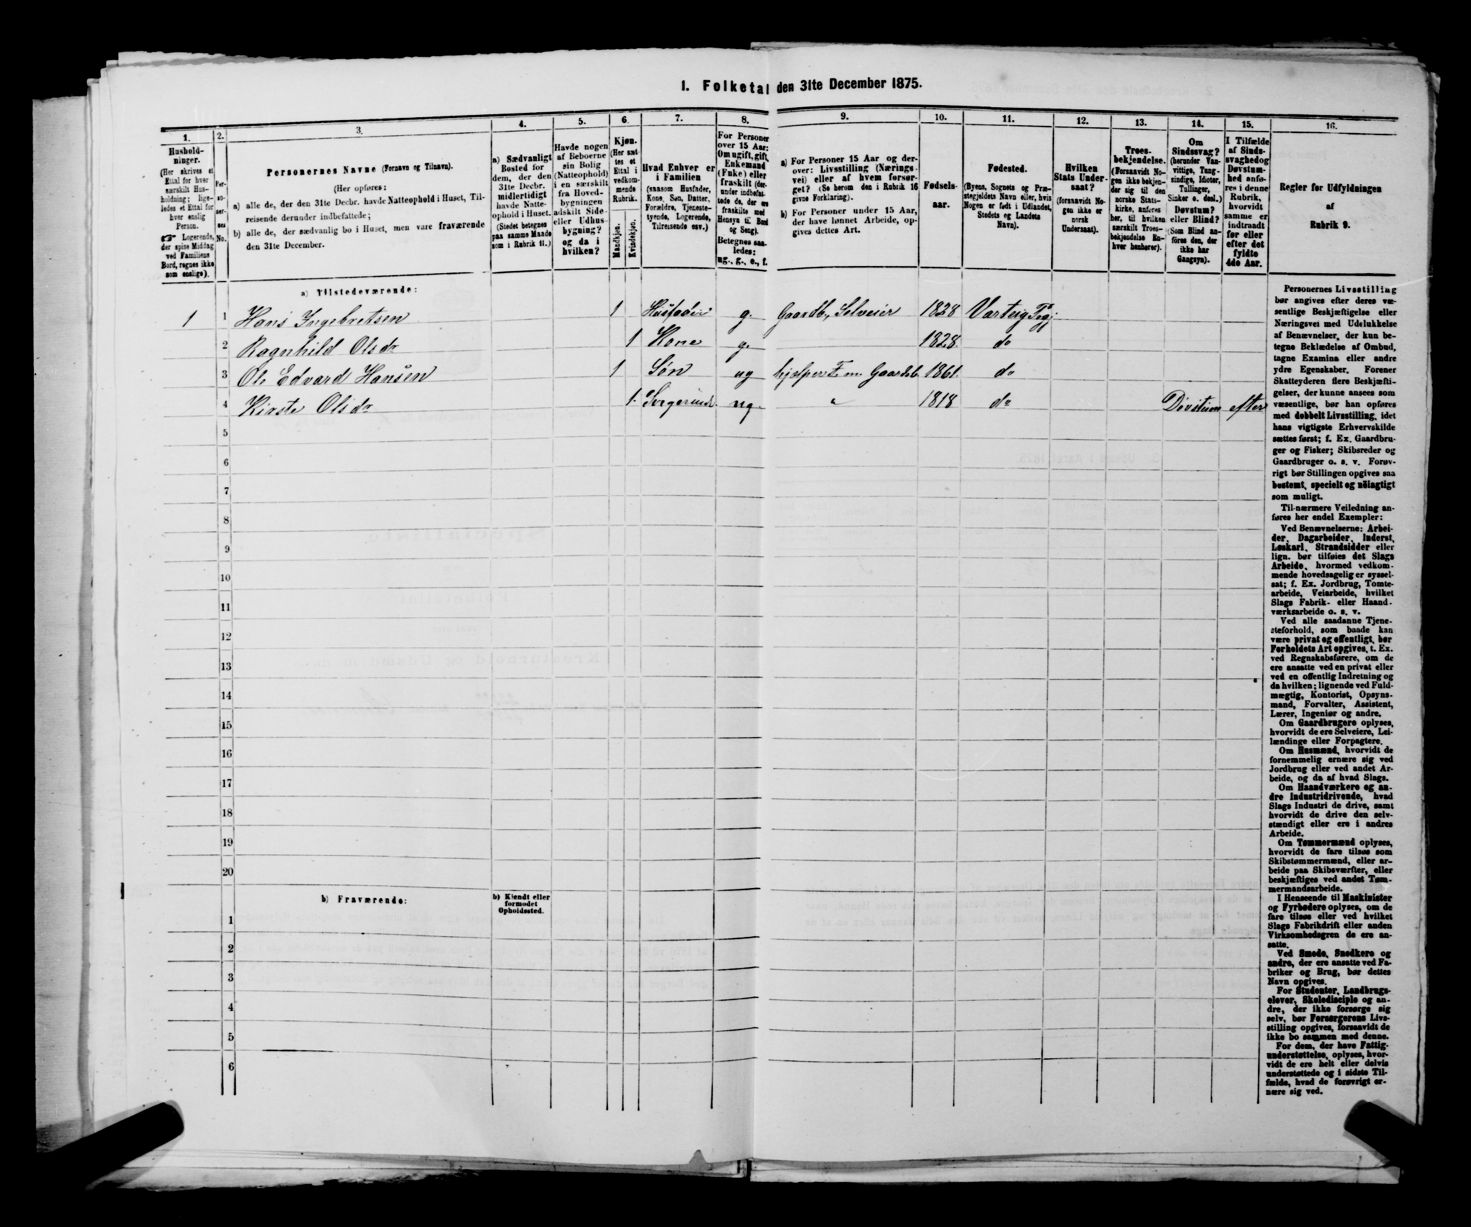 1. Folketal den 31te December 1875.
1. 2. 3. 4. 5. 6. 7. 8. 9. 10. 11. 12. 13. 14. 15. 16.
Hushold-
ninger.
(Her skrives et
Ettal for hver
særskilt Hus-
holdning; lige-
ledes et Ettal for
hver enslig
Person.
☞ Logerende,
der spise Middag
ved Familiens
Bord, regnes ikke
som enslige).
Per-
so-
ner-
nes
No.
Personernes Navne (Fornavn og Tilnavn).
(Her opføres:
a) alle de, der den 31te Decbr. havde Natteophold i Huset, Til-
reisende derunder indbefattede;
b) alle de, der sædvanlig bo i Huset, men vare fraværende
den 31te December.
a) Sædvanligt
Bosted for
dem, der den
31te Decbr.
midlertidigt
havde Natte-
ophold i Huset.
(Stedet betegnes
paa samme Maade
som i Rubrik 11.)
Havde nogen
af Beboerne
sin Bolig
(Natteophold)
i en særskilt
fra Hoved-
bygningen
adskilt Side-
eller Udhus-
bygning?
og da i
hvilken?
Kjøn.
(Her sæt-
tes et
Ettal i
vedkom-
mende
Rubrik.
Mandkjøn.
Kvindekjøn.
Hvad Enhver er
i Familien
(saasom Husfader,
Kone, Søn, Datter,
Forældre, Tjeneste-
tyende, Logerende,
Tilreisende osv.)
For Personer
over 15 Aar:
Om ugift, gift,
Enkemand
(Fuke) eller
fraskilt (der-
under indbefat-
tede de, der ere
fraskilte med
Hensyn til Bord
og Seng).
Betegnes saa-
ledes:
ug., g., e., f.
a) For Personer 15 Aar og der-
over: Livsstilling (Nærings-
vei) eller af hvem forsør-
get? (Se herom den i Rubrik 16
givne Forklaring).
b) For Personer under 15 Aar,
der have lønnet Arbeide, op-
gives dettes Art.
Fødsels-
aar.
Fødested.
(Byens, Sognets og Præ-
stegjeldets Navn eller, hvis
Nogen er født i Udlandet,
Stedets og Landets
Navn).
Hvilken
Stats Under-
saat?
(forsaavidt No-
gen ikke er
norsk
Undersaat).
Troes-
bekjendelse.
(Forsaavidt No-
gen ikke bekjen-
der sig til den
norske Stats-
kirke, anføres
her, til hvilken
særskilt Troes-
bekjendelse En-
hver henhører).
Om
Sindssvag?
(herunder Van-
vittige, Tung-
sindige, Idioter,
Tullinger,
Sinker o. desl.)
Døvstum?
eller Blind?
(Som Blind an-
føres den, der
ikke har
Gangsyn).
I Tilfælde
af Sinds-
svaghed og
Døvstum-
hed anfø-
res i denne
Rubrik,
hvorvidt
samme er
indtraadt
før eller
efter det
fyldte
4de Aar.
Regler for Udfyldningen
af
Rubrik 9.
a) Tilstedeværende:
1 1 Hans Ingebretsen 1 Husfader g. Gaardb., Selveier 1828 Varteig
2 Ragnhild Olsdr 1 Kone g. 1828. do
3 Ole Edvard Hansen 1 Søn ug hjelper F. m. Gaardsb. 1861. do
4 Kirste Olsdr 1. ug. 1818 do Døvstum efter
5
6
7
8
9
10
11
12
13
14
15
16
17
18
19
20
b) Fraværende:
b) Kjendt eller
formodet
Opholdssted.
1
2
3
4
5
6
Personernes Livsstilling
bør angives efter deres væ-
sentlige Beskjæftigelse eller
Næringsvei med Udelukkelse
af Benævnelser, der kun be-
tegne Beklædelse af Ombud,
tagne Examina eller andre
ydre Egenskaber. Forener
Skatteyderen flere Beskjæfti-
gelser, der kunne ansees som
væsentlige, bør han opføres
med dobbelt Livsstilling, idet
hans vigtigste Erhvervskilde
sættes først; f. Ex. Gaardbru-
ger og Fisker; Skibsreder og
Gaardbruger o. s. v. Forøv-
rigt bør Stillingen opgives saa
bestemt, specielt og nøiagtigt
som muligt.
Til nærmere Veiledning an-
føres her endel Exempler:
Ved Benævnelserne: Arbei-
der, Dagarbeider, Inderst,
Løskarl, Strandsidder eller
lign. bør tilføies det Slags
Arbeide, hvormed vedkom-
mende hovedsagelig er syssel-
sat; f. Ex. Jordbrug, Tomte-
arbeide, Veiarbeide, hvilket
Slags Fabrik- eller Haand-
værksarbeide o. s. v.
Ved alle saadanne Tjene-
steforhold, som baade kan
være privat og offentligt, bør
Forholdets Art opgives, t. Ex.
ved Regnskabsførere, om de
ere ansatte ved en privat eller
ved en offentlig Indretning og
da hvilken; lignende ved Fuld-
mægtig, Kontorist, Opsyns-
mand, Forvalter, Assistent,
Lærer, Ingeniør og andre.
Om Gaardbrugere oplyses,
hvorvidt de ere Selveiere, Lei-
lændinge eller Forpagtere.
Om Husmænd, hvorvidt de
fornemmelig ernære sig ved
Jordbrug eller ved andet Ar-
beide, og da af hvad Slags.
Om Haandværkere og an-
dre Industridrivende, hvad
Slags Industri de drive, samt
hvorvidt de drive den selv-
stændigt eller ere i andres
Arbeide.
Om Tømmermænd oplyses,
hvorvidt de fare tilsøs som
Skibstømmermænd, eller ar-
beide paa Skibsværfter, eller
beskjæftiges ved andet Tøm-
mermandsarbeide.
I Henseende til Maskinister
og Fyrbødere oplyses, om de
fare tilsøs eller ved hvilket
Slags Fabrikdrift eller anden
Virksomhedsgren de ere an-
satte.
Ved Smede, Snedkere og
andre, der ere ansatte ved Fa-
briker og Brug, bør dettes
Navn opgives.
For Studenter, Landbrugs-
elever, Skoledisciple og an-
dre, der ikke forsørge sig
selv, bør Forsørgerens Livs-
stilling opgives, forsaavidt de
ikke bo sammen med denne.
For dem, der have Fattig-
understøttelse, oplyses, hvor-
vidt de ere helt eller delvis
understøttede og i sidste Til-
fælde, hvad de forøvrigt er-
nære sig ved.